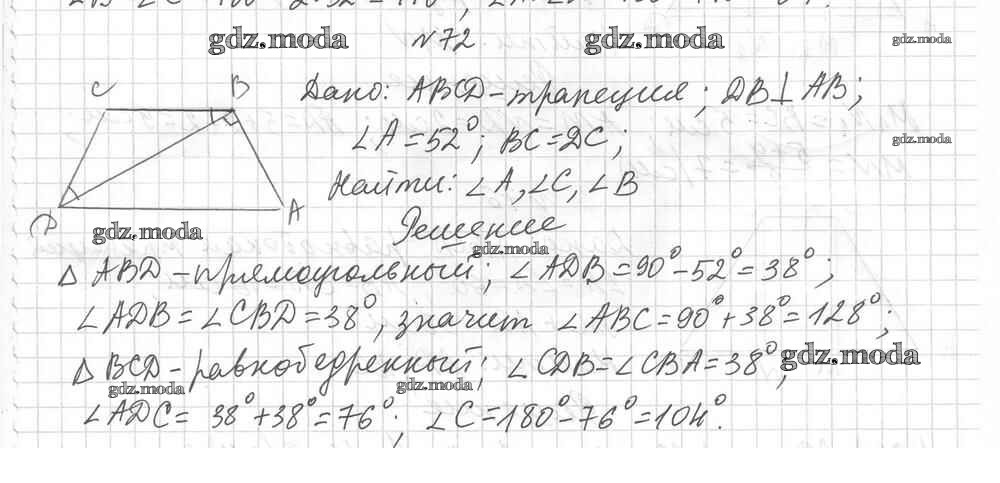 gdz.moda №72 gdz.moda gdz.moda
C B Дано: ABCD-трапеция; DB⊥AB;
∠A=52°; BC=DC;
gdz.moda
Найти: ∠A, ∠C, ∠B
D A
gdz.moda Решение
gdz.moda
△ABD-прямоугольный; ∠ADB=90°-52°=38°;
∠ADB=∠CBD=38°, значит ∠ABC=90°+38°=128°;
△BCD-равнобедренный; ∠CDB=∠CBA=38°; gdz.moda
gdz.moda gdz.moda
∠ADC= 38°+38°=76°; ∠C=180°-76°=104°.